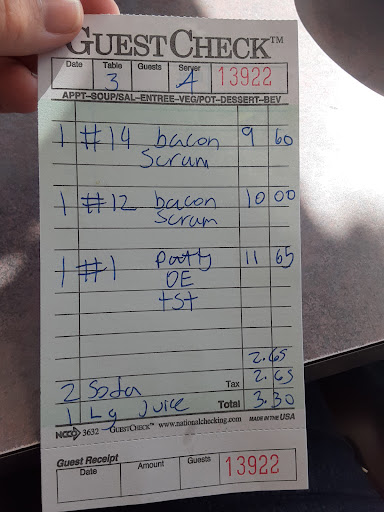 GUESTCHECK™
Date Table Guests Server 13922
3 A
APPT-SOUP/SAL-ENTREE-VEG/POT-DESSERT-BEV
1 #14 bacon 9 60
Scram
1 #12 bacon 10 00
Scram
1 #1 patty 11 65
OE
tst
2.65
2 Soda Tax 2.65
1 Lg Juice Total 3.30
NCCO 3632 GUESTCHECK™ www.nationalchecking.com MADE IN THE USA
Guest Receipt
Date Amount Guests 13922